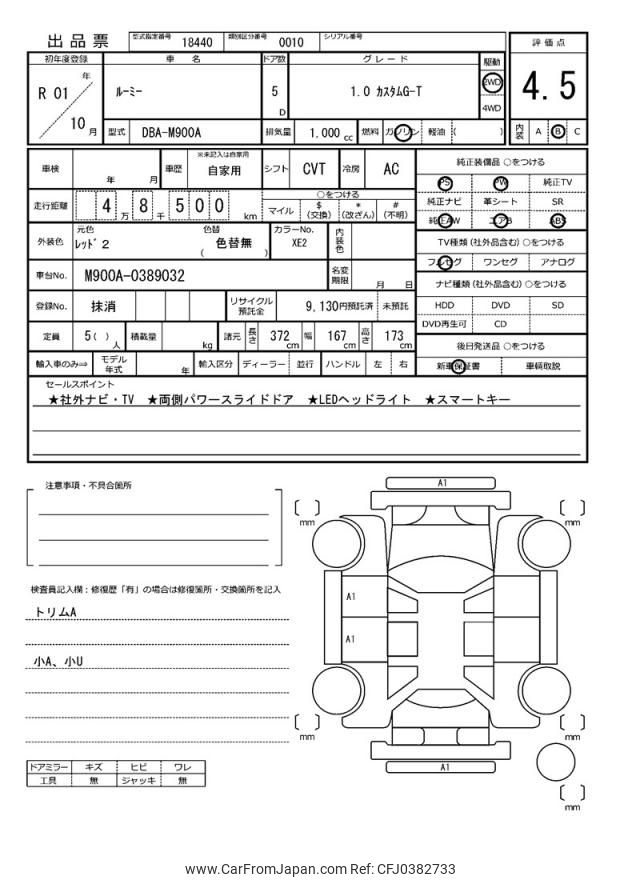 出品票
型式指定番号 18440 類別区分番号 0010 シリアル番号
評価点
4.5
内装 A B C
初年度登録 車名 ドア数 グレード 駆動
R 01 年 10 月
ルーミー
5 D
1.0 カスタムG-T
2WD
4WD
型式 DBA-M900A 排気量 1,000 cc 燃料 ガソリン 軽油 ( )
車検 年 月 車歴 ※未記入は自家用 自家用 シフト CVT 冷房 AC
走行距離 4 万 8 千 5 0 0 km
○をつける
マイル $(交換) *(改ざん) #(不明)
外装色 元色 レッド2 色替 ( 色替無 ) カラーNo. XE2 内装色
車台No. M900A-0389032 名変期限 月 日
登録No. 抹消 リサイクル預託金 9,130円預託済 未預託
定員 5( ) 人 積載量 kg 諸元 長さ 372 cm 幅 167 cm 高さ 173 cm
輸入車のみ⇒ モデル年式 年 輸入区分 ディーラー 並行 ハンドル 左 右
純正装備品 ○をつける
PS PW 純正TV
純正ナビ 革シート SR
純正AW エアB ABS
TV種類 (社外品含む) ○をつける
フルセグ ワンセグ アナログ
ナビ種類 (社外品含む) ○をつける
HDD DVD SD
DVD再生可 CD
後日発送品 ○をつける
新車保証書 車輌取説
セールスポイント
★社外ナビ・TV ★両側パワースライドドア ★LEDヘッドライト ★スマートキー
注意事項・不具合箇所
検査員記入欄：修復歴「有」の場合は修復箇所・交換箇所を記入
トリムA
小A、小U
ドアミラー キズ ヒビ ワレ
工具 無 ジャッキ 無
A1
mm
mm
A1
A1
mm
mm
A1
mm
www.CarFromJapan.com Ref: CFJ0382733